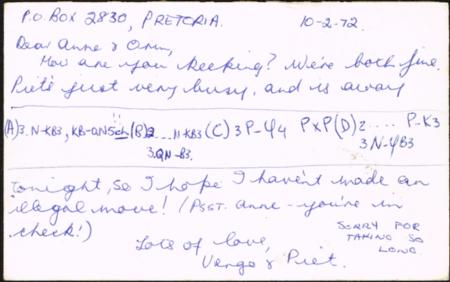 P.O. BOX 2830, PRETORIA. 10-2-72.
Dear Anne & Orm,
How are you keeping? We're both fine.
Piet's just very busy, and is away
(A) 3. N-KB3, KB-QN5ch (B) 2 .... N-KB3 (C) 3 P-Q4 PxP (D) 2 .... P-K3
3. QN-B3. 3 N-QB3
tonight, so I hope I haven't made an
illegal move! (Psst. Anne - you're in
check!)
Lots of love,
Verge & Piet.
SORRY FOR
TAKING SO
LONG.